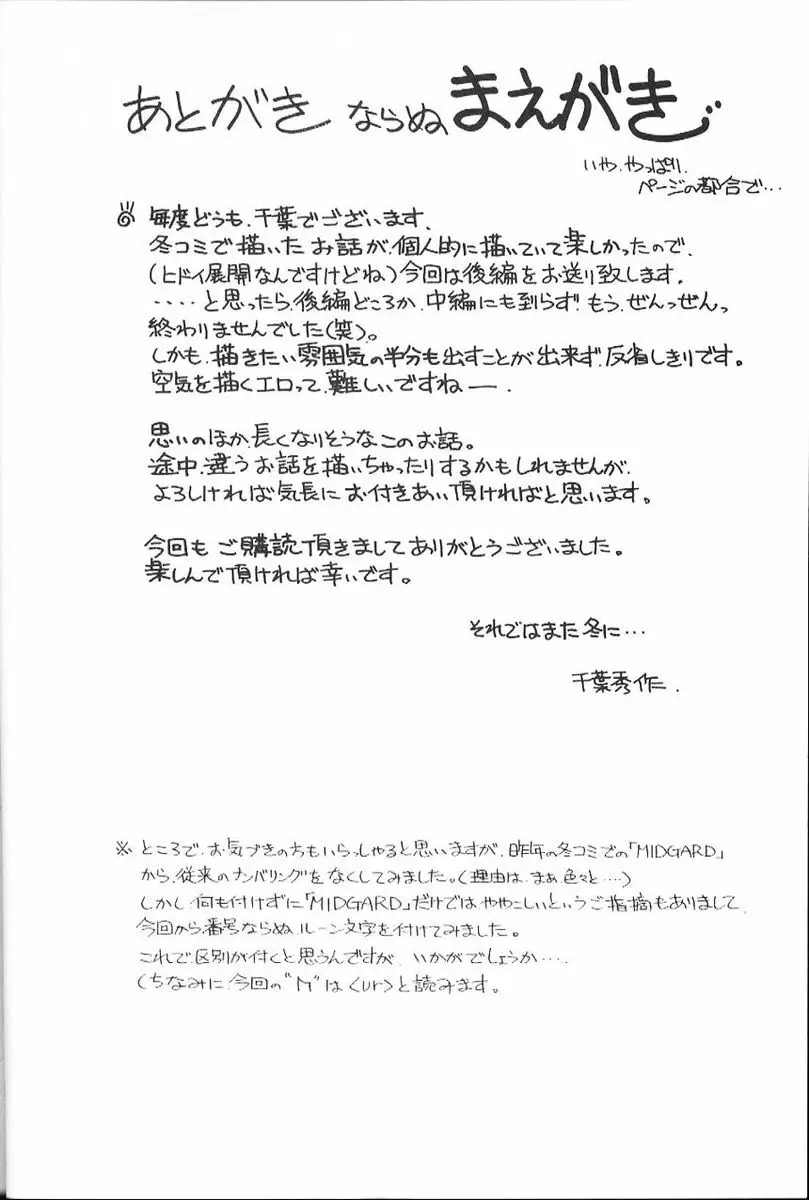 あとがき ならぬ、まえがき
いや、やっぱり、
ページの都合で…
毎度どうも、千葉でございます、
冬コミで描いたお話が、個人的に描いていて楽しかったので、
(ヒドイ展開なんですけどね)今回は後編をお送り致します、
‥‥と思ったら、後編どころか、中編にも到らず!もう、ぜんっぜんっ
終わりませんでした(笑)。
しかも、描きたい雰囲気の半分も出すことが出来ず、反省しきりです。
空気を描くエロって、難しいですねー、
思いのほか、長くなりそうなこのお話。
途中、違うお話を描いちゃったりするかもしれませんが、
よろしければ気長に お付きあい頂ければと思います。
今回も ご購読頂きまして ありがとうございました。
楽しんで頂ければ幸いです。
それではまた冬に…
千葉秀作、
※ ところで、お気づきの方もいらっしゃると思いますが、昨年の冬コミでの「MIDGARD」
から、従来のナンバリングをなくしてみました。(理由は、まぁ色々と‥‥)
しかし 何も付けずに「MIDGARD」だけでは ややこしいというご指摘もありまして、
今回から番号ならぬ、ルーン文字を付けてみました。
これで区別が付くと思うんですが、いかがでしょうか‥‥
(ちなみに、今回の"ᚢ"は<ur>と読みます。